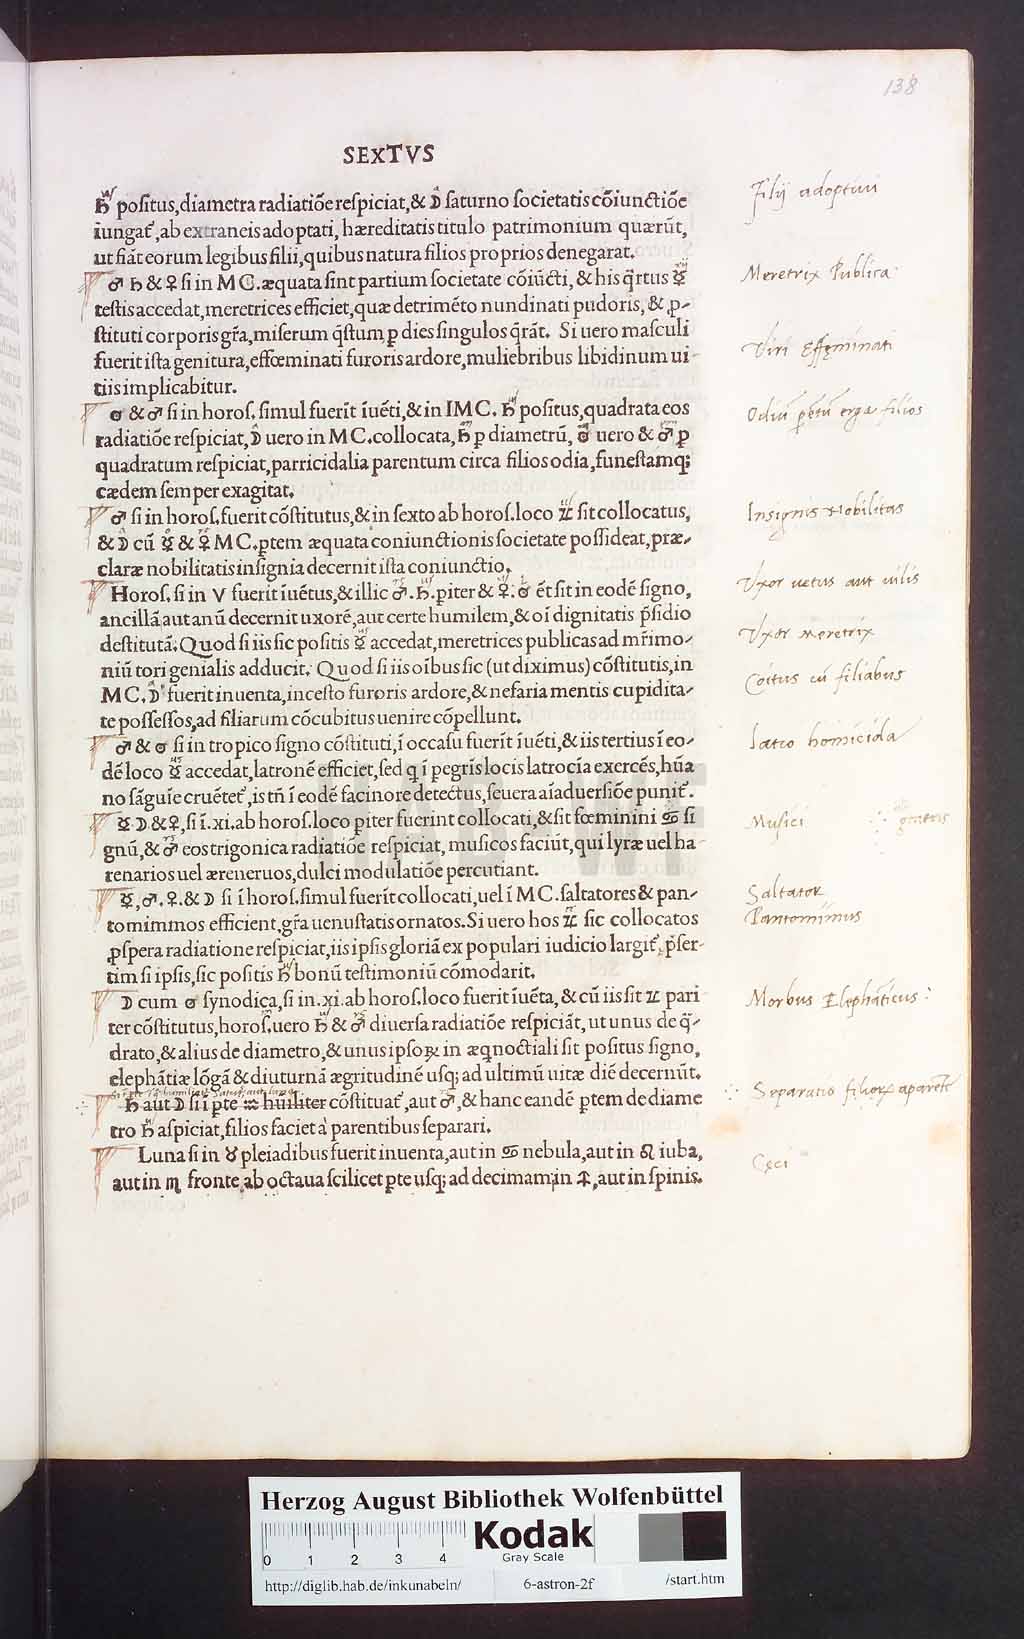 138
SEXTVS
♄ positus, diametra radiatiõe respiciat, & ☽ saturno societatis cõiunctiõe
iungat᷑, ab extraneis adoptati, hæreditatis titulo patrimonium quærũt,
ut fiãt eorum legibus filii, quibus natura filios proprios denegarat.
♂ ♄ & ♀ si in MC. æquata sint partium societate cõiũcti, & his q̃rtus ☿
testis accedat, meretrices efficiet, quæ detrimẽto nundinati pudoris, & ꝓ-
stituti corporis gr̃a, miserum q̃stum ꝑ dies singulos q̃rãt. Si uero masculi
fuerit ista genitura, effœminati furoris ardore, muliebribus libidinum ui-
tiis implicabitur.
☉ & ♂ si in horos. simul fuerĩt ĩuẽti, & in IMC. ♄ positus, quadrata eos
radiatiõe respiciat, ☽ uero in MC. collocata, ♄ ꝑ diametrũ, ☉ uero & ♂ ꝑ
quadratum respiciat, parricidalia parentum circa filios odia, funestamq;
cædem semper exagitat.
♂ si in horos. fuerit cõstitutus, & in sexto ab horos. loco ♃ sit collocatus,
& ☽ cũ ☿ & ♀ MC. ꝑtem æquata coniunctionis societate possideat, præ-
claræ nobilitatis insignia decernit ista coniunctio.
Horos. si in ♈ fuerit ĩuẽtus, & illic ♂. ♄. ꝑiter & ♀. ☉ ẽt sit in eodẽ signo,
ancillã aut anũ decernit uxorẽ, aut certe humilem, & oĩ dignitatis p̃sidio
destitutã: Quod si iis sic positis ☿ accedat, meretrices publicas ad mr̃imo-
niũ tori genialis adducit. Quod si iis oĩbus sic (ut diximus) cõstitutis, in
MC. ☽ fuerit inuenta, incesto furoris ardore, & nefaria mentis cupidita-
te possessos, ad filiarum cõcubitus uenire cõpellunt.
♂ & ☉ si in tropico signo cõstituti, ĩ occasu fuerĩt ĩuẽti, & iis tertius ĩ eo-
dẽ loco ☿ accedat, latronẽ efficiet, sed q ĩ pegrĩs locis latrocĩa exercẽs, hũa
no sãguĩe cruẽtet᷑, is tñ ĩ eodẽ facinore detectus, seuera aĩaduersiõe punit᷑.
☿ ☽ & ♀, si ĩ .xi. ab horos. loco ꝑiter fuerint collocati, & sit fœminini ♋ si
gnũ, & ♂ eos trigonica radiatiõe respiciat, musicos faciũt, qui lyræ uel ha
renarios uel æreneruos, dulci modulatiõe percutiant.
☿, ♂. ♀. & ☽ si ĩ horos. simul fuerĩt collocati, uel ĩ MC. saltatores & pan-
tomimmos efficient, gr̃a uenustatis ornatos. Si uero hos ♃ sic collocatos
ꝓspera radiatione respiciat, iis ipsis gloriã ex populari iudicio largit᷑, p̃ser-
tim si ipsis, sic positis ♄ bonũ testimoniũ cõmodarit.
☽ cum ☉ synodica, si in .xi. ab horos. loco fuerit ĩuẽta, & cũ iis sit ♃ pari
ter cõstitutus, horos. uero ♄ & ♂ diuersa radiatiõe respiciãt, ut unus de q̃-
drato, & alius de diametro, & unus ipsoꝝ in æqnoctiali sit positus signo,
elephãtiæ lõgã & diuturnã ægritudinẽ usq; ad ultimũ uitæ diẽ decernũt.
♄ aut ☽ si ĩ ꝑte ♒ huiliter cõstituat᷑, aut ♂, & hanc eandẽ ꝑtem de diame
tro ♄ aspiciat, filios faciet à parentibus separari.
Luna si in ♉ pleiadibus fuerit inuenta, aut in ♋ nebula, aut in ♌ iuba,
aut in ♏ fronte, ab octaua scilicet ꝑte usq; ad decimam, in ♐, aut in spinis.
Filij adoptiui
Meretrix Publica:
Viri Effęminati
Odiũ pr̃tũ erga filios
Insignis Nobilitas
Vxor uetus aut uilis
Vxor Meretrix
Coitus cũ filiabus
Latro homicida
Musici
Saltator
Pantomimus
Morbus Elephãticus:
Separatio filioꝝ a parẽtib
Cęci
HAB WF
Herzog August Bibliothek Wolfenbüttel
0 1 2 3 4
Kodak
Gray Scale
http://diglib.hab.de/inkunabeln/
6-astron-2f
/start.htm